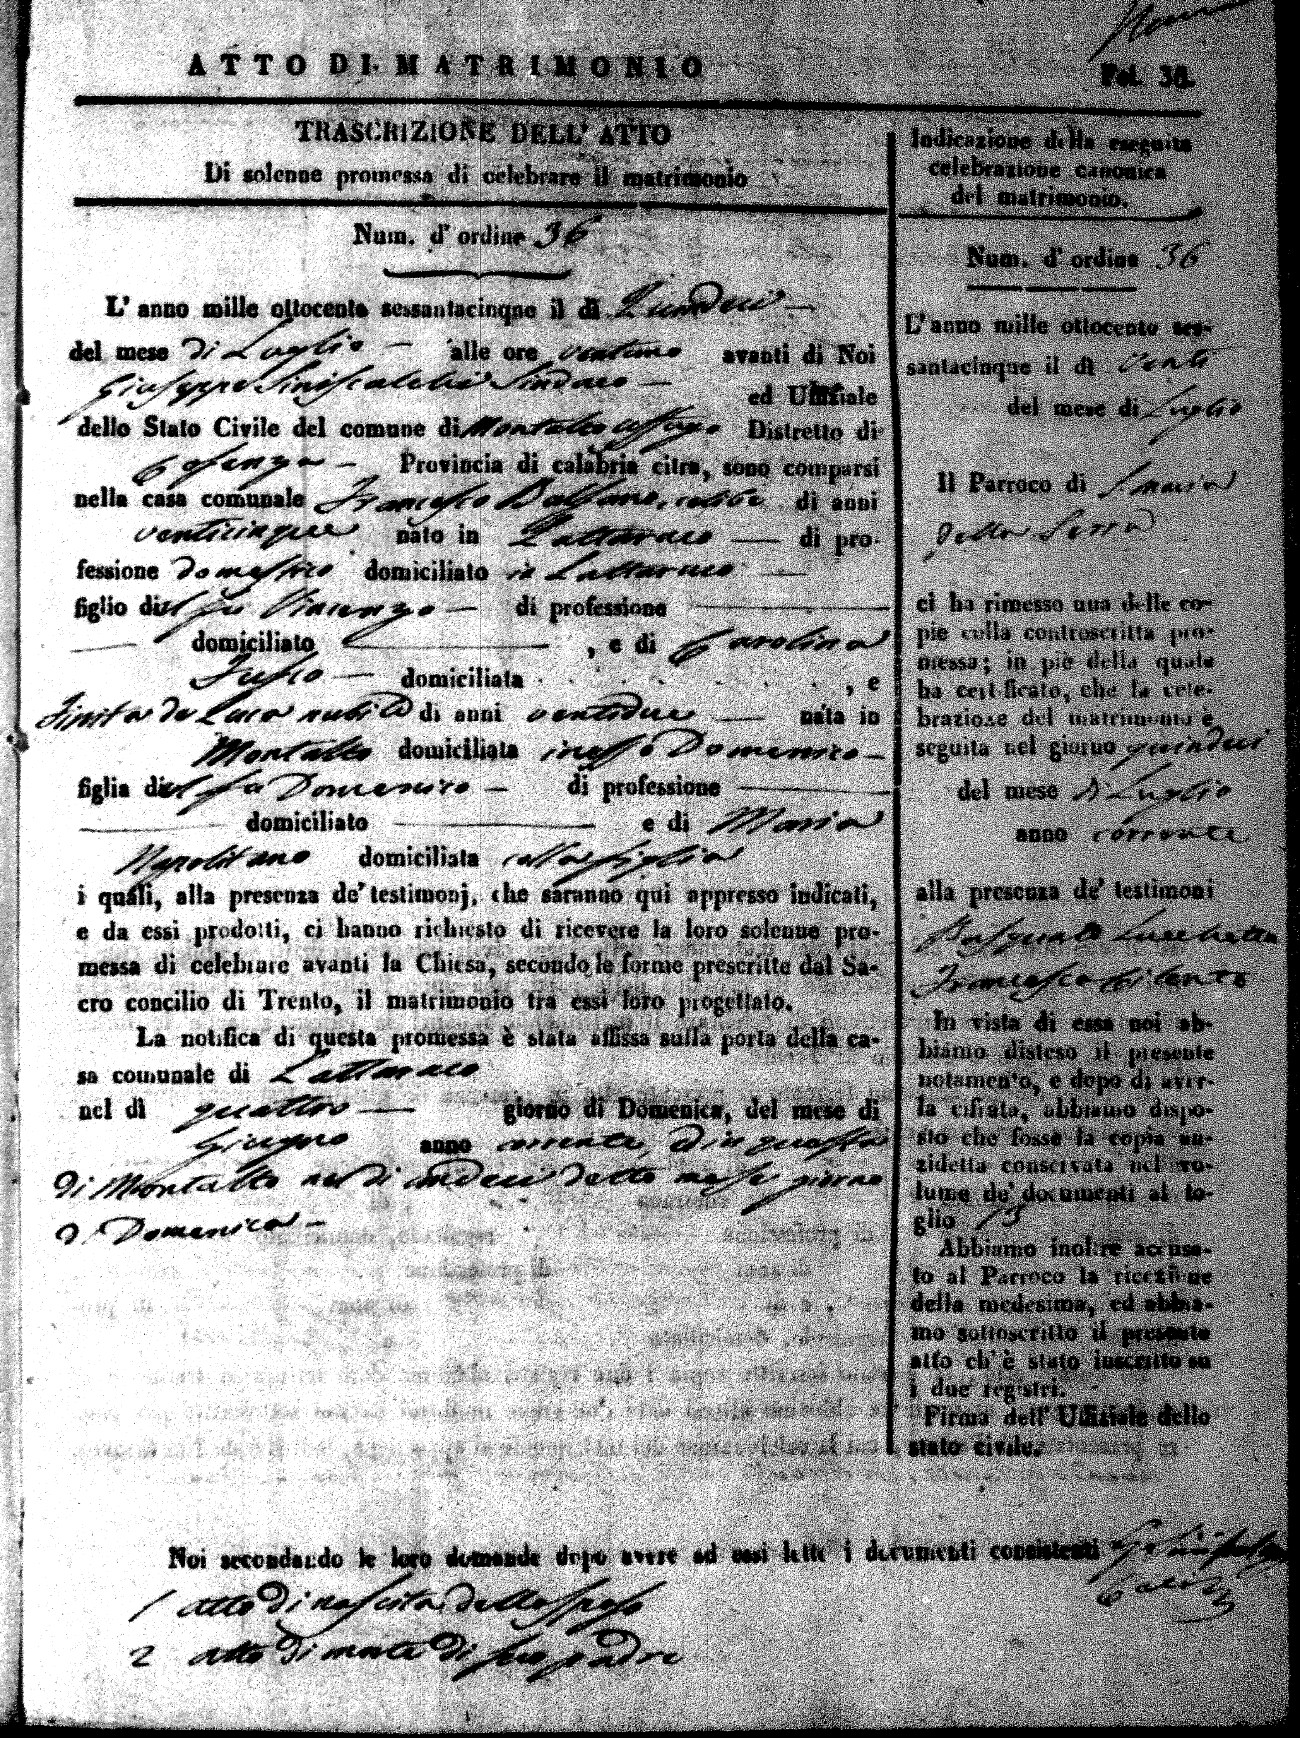 ATTO DI MATRIMONIO
Fol. 36.
TRASCRIZIONE DELL' ATTO
Di solenne promessa di celebrare il matrimonio
Num. d' ordine 36
L' anno mille ottocento sessantacinque il dì Quindeci
del mese di Luglio alle ore ventuno avanti di Noi
Giuseppe Siniscalchi Sindaco ed Uffiziale
dello Stato Civile del comune di Montalto Uffugo Distretto di
Cosenza Provincia di calabria citra, sono comparsi
nella casa comunale Francesco celibe di anni
venticinque nato in Lattaraco di pro-
fessione domestico domiciliato in Lattaraco
figlio del fu Vincenzo di professione
domiciliato , e di Carolina
Fusco domiciliata , e
de Luca nubile di anni ventidue nata in
Montalto domiciliata ivi Domenico
figlia del fu Domenico di professione
domiciliato e di Maria
Napolitano domiciliata colla figlia
i quali, alla presenza de' testimonj, che saranno qui appresso indicati,
e da essi prodotti, ci hanno richiesto di ricevere la loro solenne pro-
messa di celebrare avanti la Chiesa, secondo le forme prescritte dal Sa-
cro concilio di Trento, il matrimonio tra essi loro progettato.
La notifica di questa promessa è stata affissa sulla porta della ca-
sa comunale di Lattaraco
nel dì quattro giorno di Domenica, del mese di
Giugno anno corrente, e in questa
di Montalto nel dì undeci detto mese giorno
di Domenica
Indicazione della eseguita
celebrazione canonica
del matrimonio.
Num. d' ordine 36
L' anno mille ottocento ses-
santacinque il dì venti
del mese di Luglio
Il Parroco di S. Maria
della Serra
ci ha rimesso una delle co-
pie colla controscritta pro-
messa; in piè della quale
ha certificato, che la cele-
brazione del matrimonio è
seguita nel giorno quindeci
del mese di Luglio
anno corrente
alla presenza de' testimoni
Pasquale Lucchetta
Francesco
In vista di essa noi ab-
biamo disteso il presente
notamento, e dopo di aver-
la cifrata, abbiamo dispo-
sto che fosse la copia an-
zidetta conservata nel vo-
lume de' documenti al fo-
glio 13
Abbiamo inoltre accusa-
to al Parroco la ricezione
della medesima, ed abbia-
mo sottoscritto il presente
atto ch' è stato inscritto su
i due registri.
Firma dell' Uffiziale dello
stato civile.
Noi secondando le loro domande dopo avere ad essi letti i documenti consistenti
1 atto di nascita dello sposo
2 atto di morte di suo padre